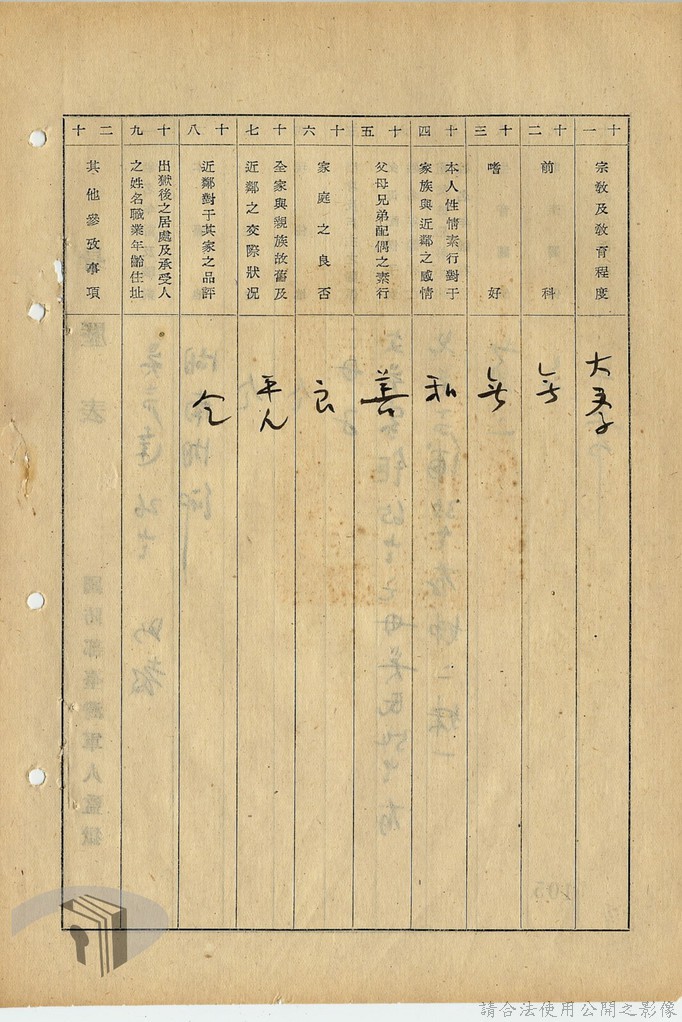 十一
宗教及教育程度
大学
十二
前科
無
十三
嗜好
無
十四
本人性情素行對于
家族與近鄰之感情
和
十五
父母兄弟配偶之素行
善
十六
家庭之良否
良
十七
全家與親族故舊及
近鄰之交際狀况
平凡
十八
近鄰對于其家之品評
仝
十九
出獄後之居處及承受人
之姓名職業年齡住址
二十
其他參攷事項
請合法使用公開之影像